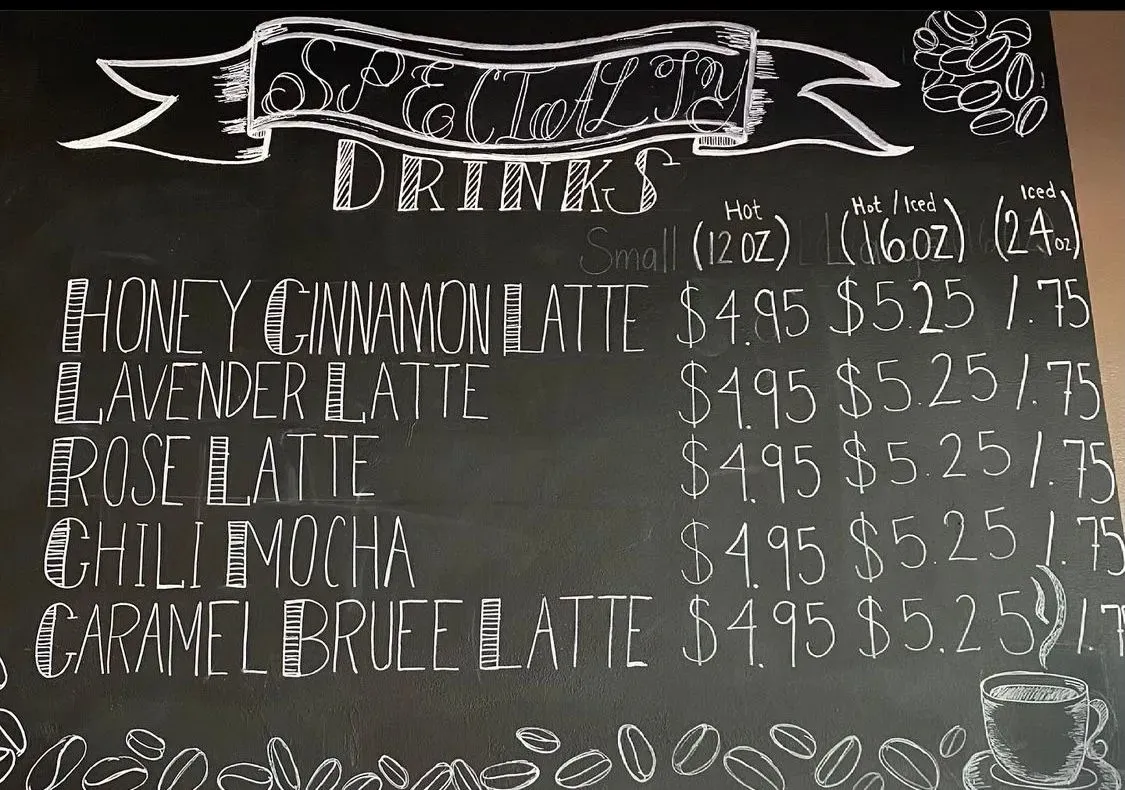 SPECIALTY
DRINKS
Hot Hot / Iced Iced
Small (12 OZ) (16 OZ) (24 oz)
HONEY CINNAMON LATTE $4.95 $5.25 /.75
LAVENDER LATTE $4.95 $5.25 /.75
ROSE LATTE $4.95 $5.25 /.75
CHILI MOCHA $4.95 $5.25 /.75
CARAMEL BRUEE LATTE $4.95 $5.25 /.7